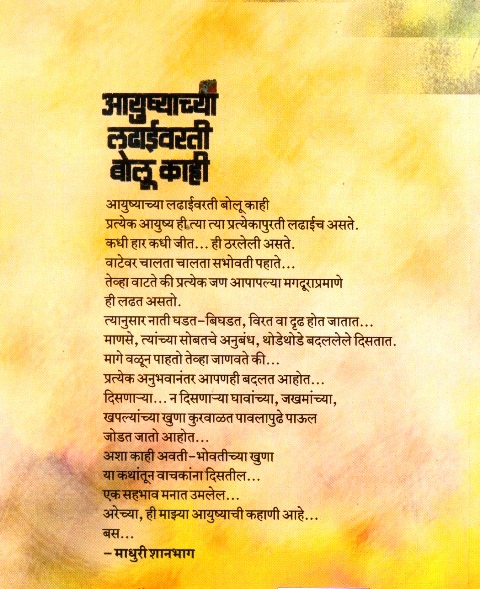 आयुष्याच्या
लढाईवरती
बोलू काही
आयुष्याच्या लढाईवरती बोलू काही
प्रत्येक आयुष्य ही त्या त्या प्रत्येकापुरती लढाईच असते.
कधी हार कधी जीत... ही ठरलेली असते.
वाटेवर चालता चालता सभोवती पहाते...
तेव्हा वाटते की प्रत्येक जण आपापल्या मगदूराप्रमाणे
ही लढत असतो.
त्यानुसार नाती घडत-बिघडत, विरत वा दृढ होत जातात...
माणसे, त्यांच्या सोबतचे अनुबंध, थोडेथोडे बदललेले दिसतात.
मागे वळून पाहतो तेव्हा जाणवते की...
प्रत्येक अनुभवानंतर आपणही बदलत आहोत...
दिसणाऱ्या... न दिसणाऱ्या घावांच्या, जखमांच्या,
खपल्यांच्या खुणा कुरवाळत पावलापुढे पाऊल
जोडत जातो आहोत...
अशा काही अवती-भोवतीच्या खुणा
या कथांतून वाचकांना दिसतील...
एक सहभाव मनात उमलेल...
अरेच्या, ही माझ्या आयुष्याची कहाणी आहे...
बस...
– माधुरी शानभाग